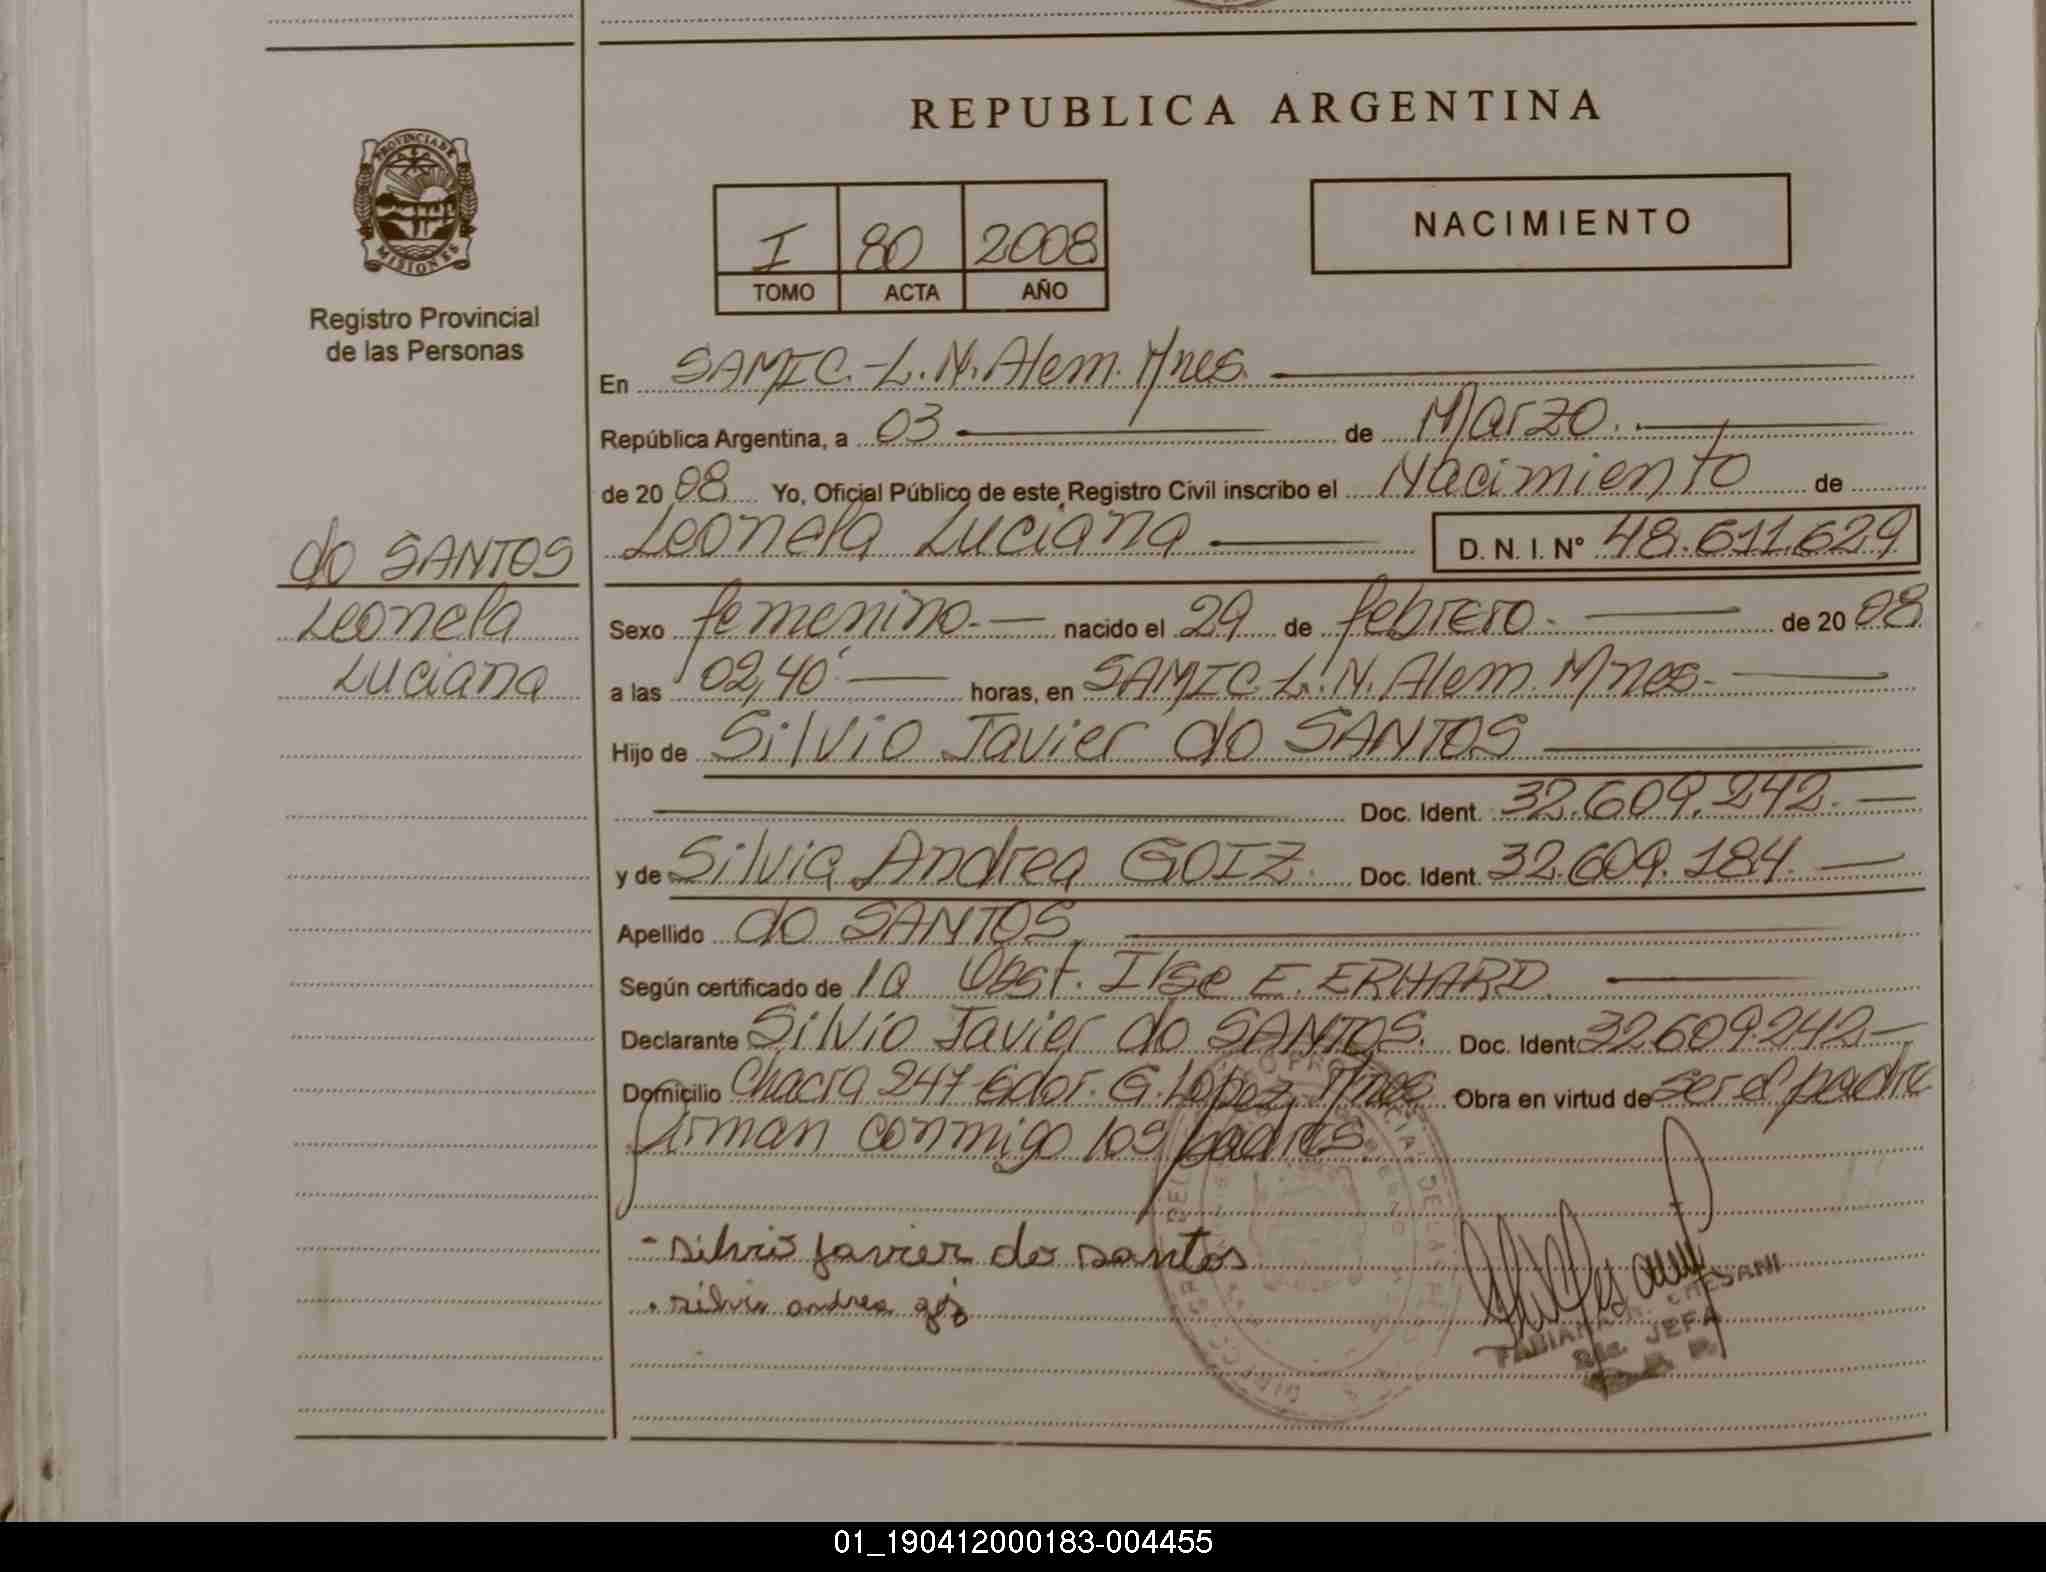 REPUBLICA ARGENTINA
PROVINCIA DE
MISIONES
Registro Provincial
de las Personas
I 80 2008
TOMO ACTA AÑO
NACIMIENTO
En SAMIC.-L.N.Alem.Mnes.
República Argentina, a 03 de Marzo.
de 2008 Yo, Oficial Público de este Registro Civil inscribo el Nacimiento de
do SANTOS
Leonela
Luciana
Leonela Luciana D. N. I. Nº 48.611.629
Sexo femenino.- nacido el 29 de febrero. de 2008
a las 02,40' horas, en SAMIC.-L.N.Alem.Mnes.-
Hijo de Silvio Javier do SANTOS
Doc. Ident. 32.609.242.
y de Silvia Andrea GOIZ. Doc. Ident. 32.609.184.
Apellido do SANTOS.
Según certificado de la Obst. Ilse E. ERHARD.
Declarante Silvio Javier do SANTOS. Doc. Ident. 32609.242-
Domicilio Chacra 247-Gdor. G.Lopez, Mnes Obra en virtud de ser el padre
firman conmigo los padres.
- silvio javier do santos
. silvia andrea goiz
CHESANI
JEFA
01_190412000183-004455